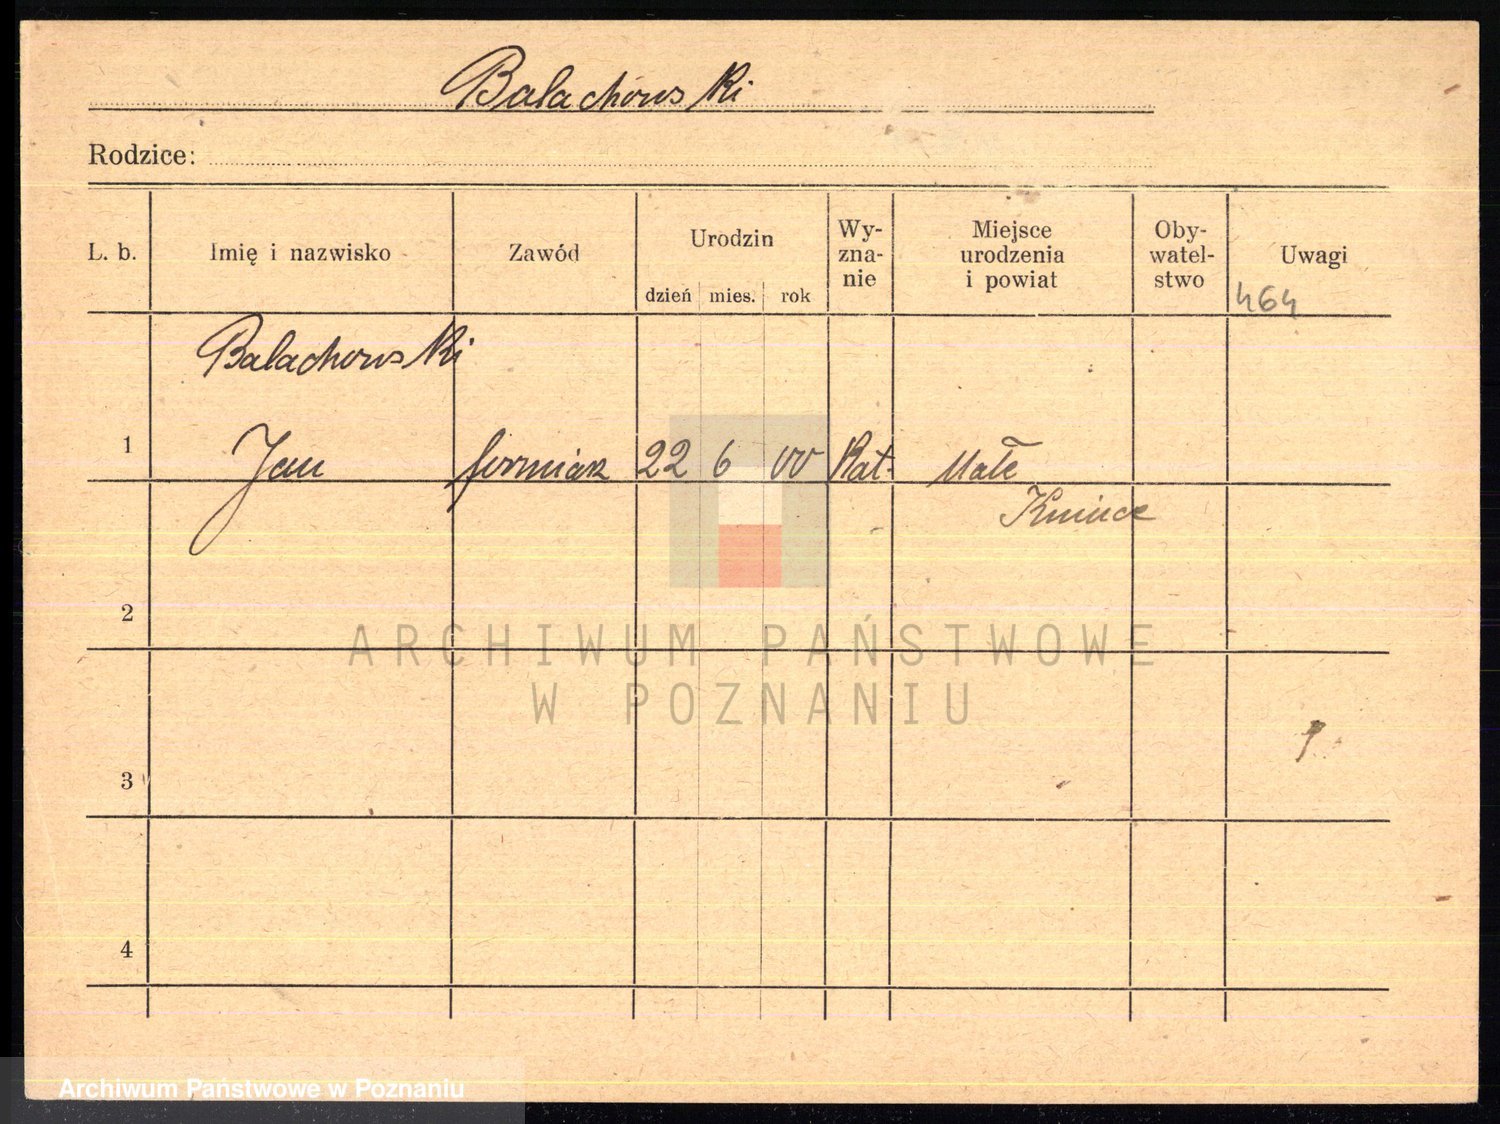 Balachowski
Rodzice:
L. b. Imię i nazwisko Zawód Urodzin dzień mies. rok Wy-zna-nie Miejsce urodzenia i powiat Oby-watel-stwo Uwagi
464
Balachowski
1 Jan forniarz 22 6 00 Kat. Małe
2
3
4
ARCHIWUM PAŃSTWOWE
W POZNANIU
Archiwum Państwowe w Poznaniu